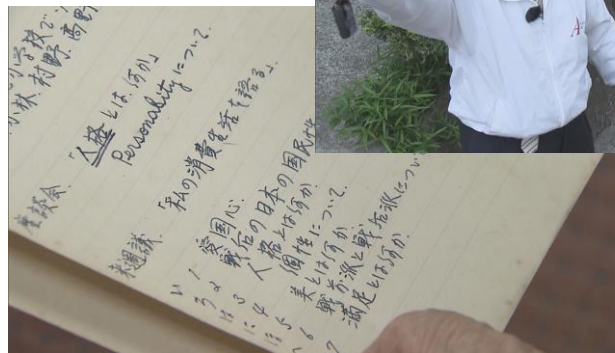 小学校で
村野, 高野
座談会. 「人格とは何か」
Personality について.
来週議. 「私の消費生活を語る」
い 1 愛国心
ろ 2 戦后の日本の国民性
は 3 人格とは何か
に 4 個性について.
ほ 5 美とは何か
へ 6 戦前派と戦后派につい
7 満足とは何か